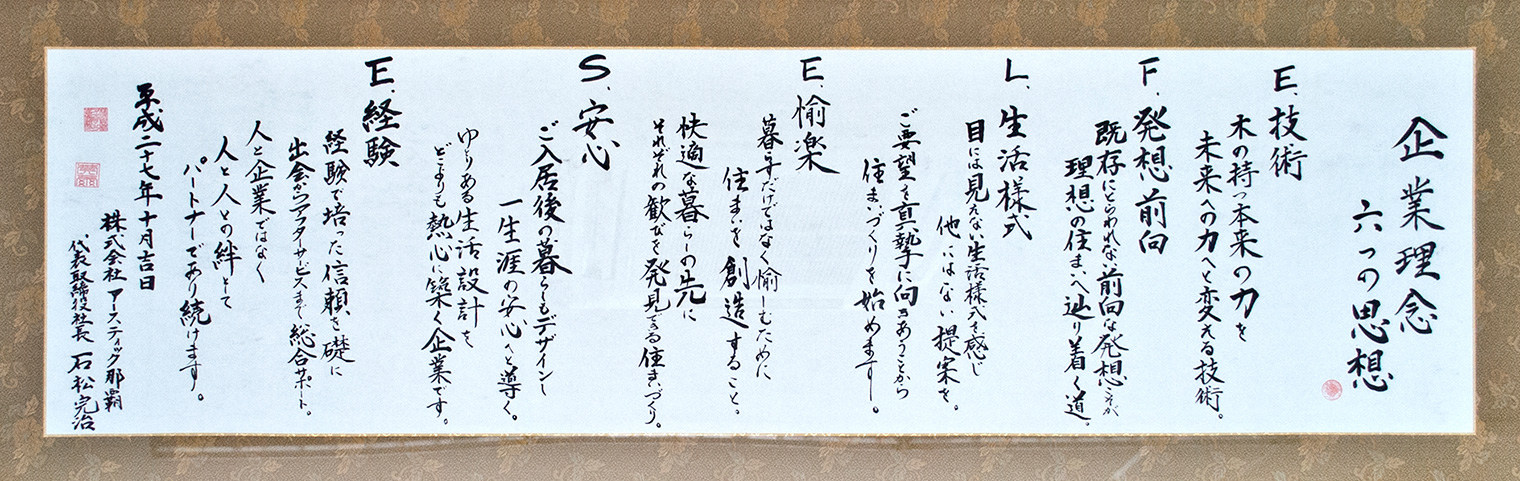 企業理念
六つの思想
E.技術
木の持つ本来の力を
未来への力へと変える技術。
F.発想前向
既存にとらわれない前向な発想こそが
理想の住まいへ辿り着く道。
L.生活様式
目には見えない生活様式を感じ
他にはない提案を。
ご要望を真摯に向きあうことから
住まいづくりを始めます。
E.愉楽
暮らすだけではなく愉しむために
住まいを創造すること。
快適な暮らしの先に
それぞれの歓びを発見できる住まいづくり。
S.安心
ご入居後の暮らしもデザインし
一生涯の安心へと導く。
ゆとりある生活設計を
どこよりも熱心に築く企業です。
E.経験
経験で培った信頼を礎に
出会からアフターサービスまで総合サポート。
人と企業ではなく
人と人との絆として
パートナーであり続けます。
平成二十七年十月吉日
株式会社 アースティック那覇
代表取締役社長 石松完治